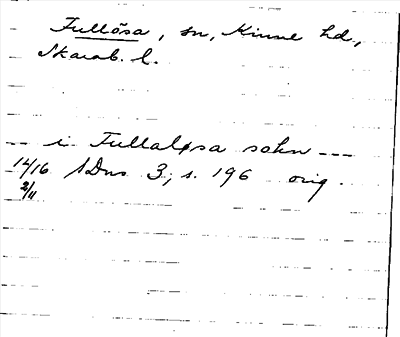 Fullösa, sn, Kinne hd,
Skarab. l.
-- i Fullaløsa sokn ---
14/16 SDns 3; s. 196 orig.
2/11